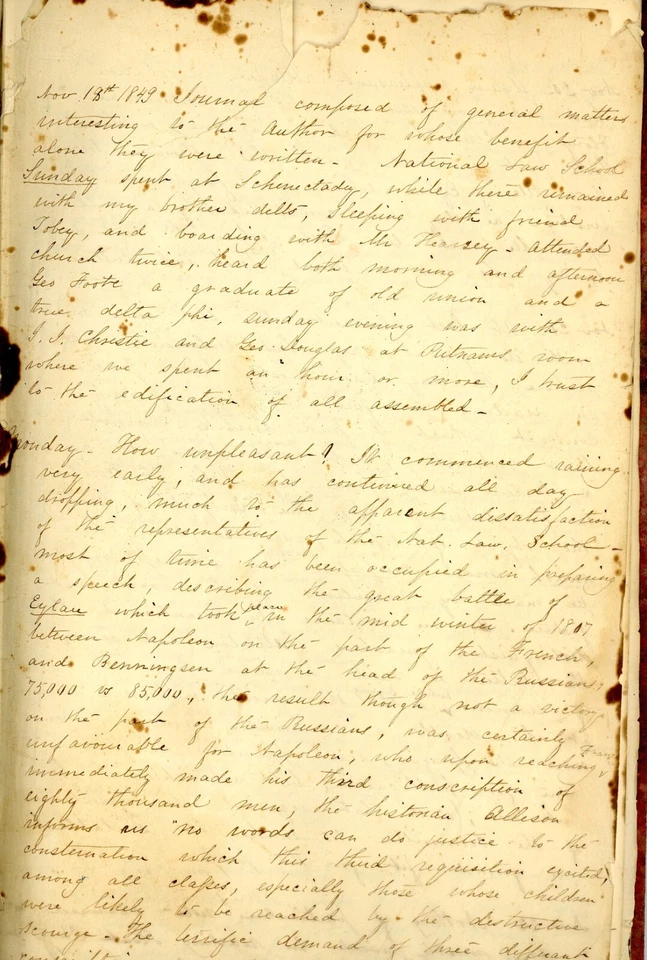 Nov. 18th 1849 Journal composed of general matters
interesting to the Author for whose benefit
alone they were written - National Law School
Sunday spent at Schenectady, while there remained
with my brother delts, sleeping with friend
Tobey, and boarding with Mr Hearsey - attended
church twice, heard both morning and afternoon
Geo Foote a graduate of old union and a
true delta phi, sunday evening was with
J. J. Christie and Geo. Douglas at Putnams room
where we spent an hour or more, I trust
to the edification of all assembled -
Monday - How unpleasant! It commenced raining
very early, and has continued all day
dropping, much to the apparent dissatisfaction
of the representatives of the Nat. Law. School -
most of time has been occupied in preparing
a speech, describing the great battle of
Eylau which took place in the mid winter of 1807
between Napoleon on the part of the French,
and Benningsen at the head of the Russians,
75,000 vs 85,000, the result though not a victory
on the part of the Russians, was certainly
unfavourable for Napoleon, who upon reaching France
immediately made his third conscription of
eighty thousand men, the historian Allison
informs us "no words can do justice to the
consternation which this third requisition excited,
among all classes, especially those whose children
were likely to be reached by the destructive
scourge - The terrific demand of three different